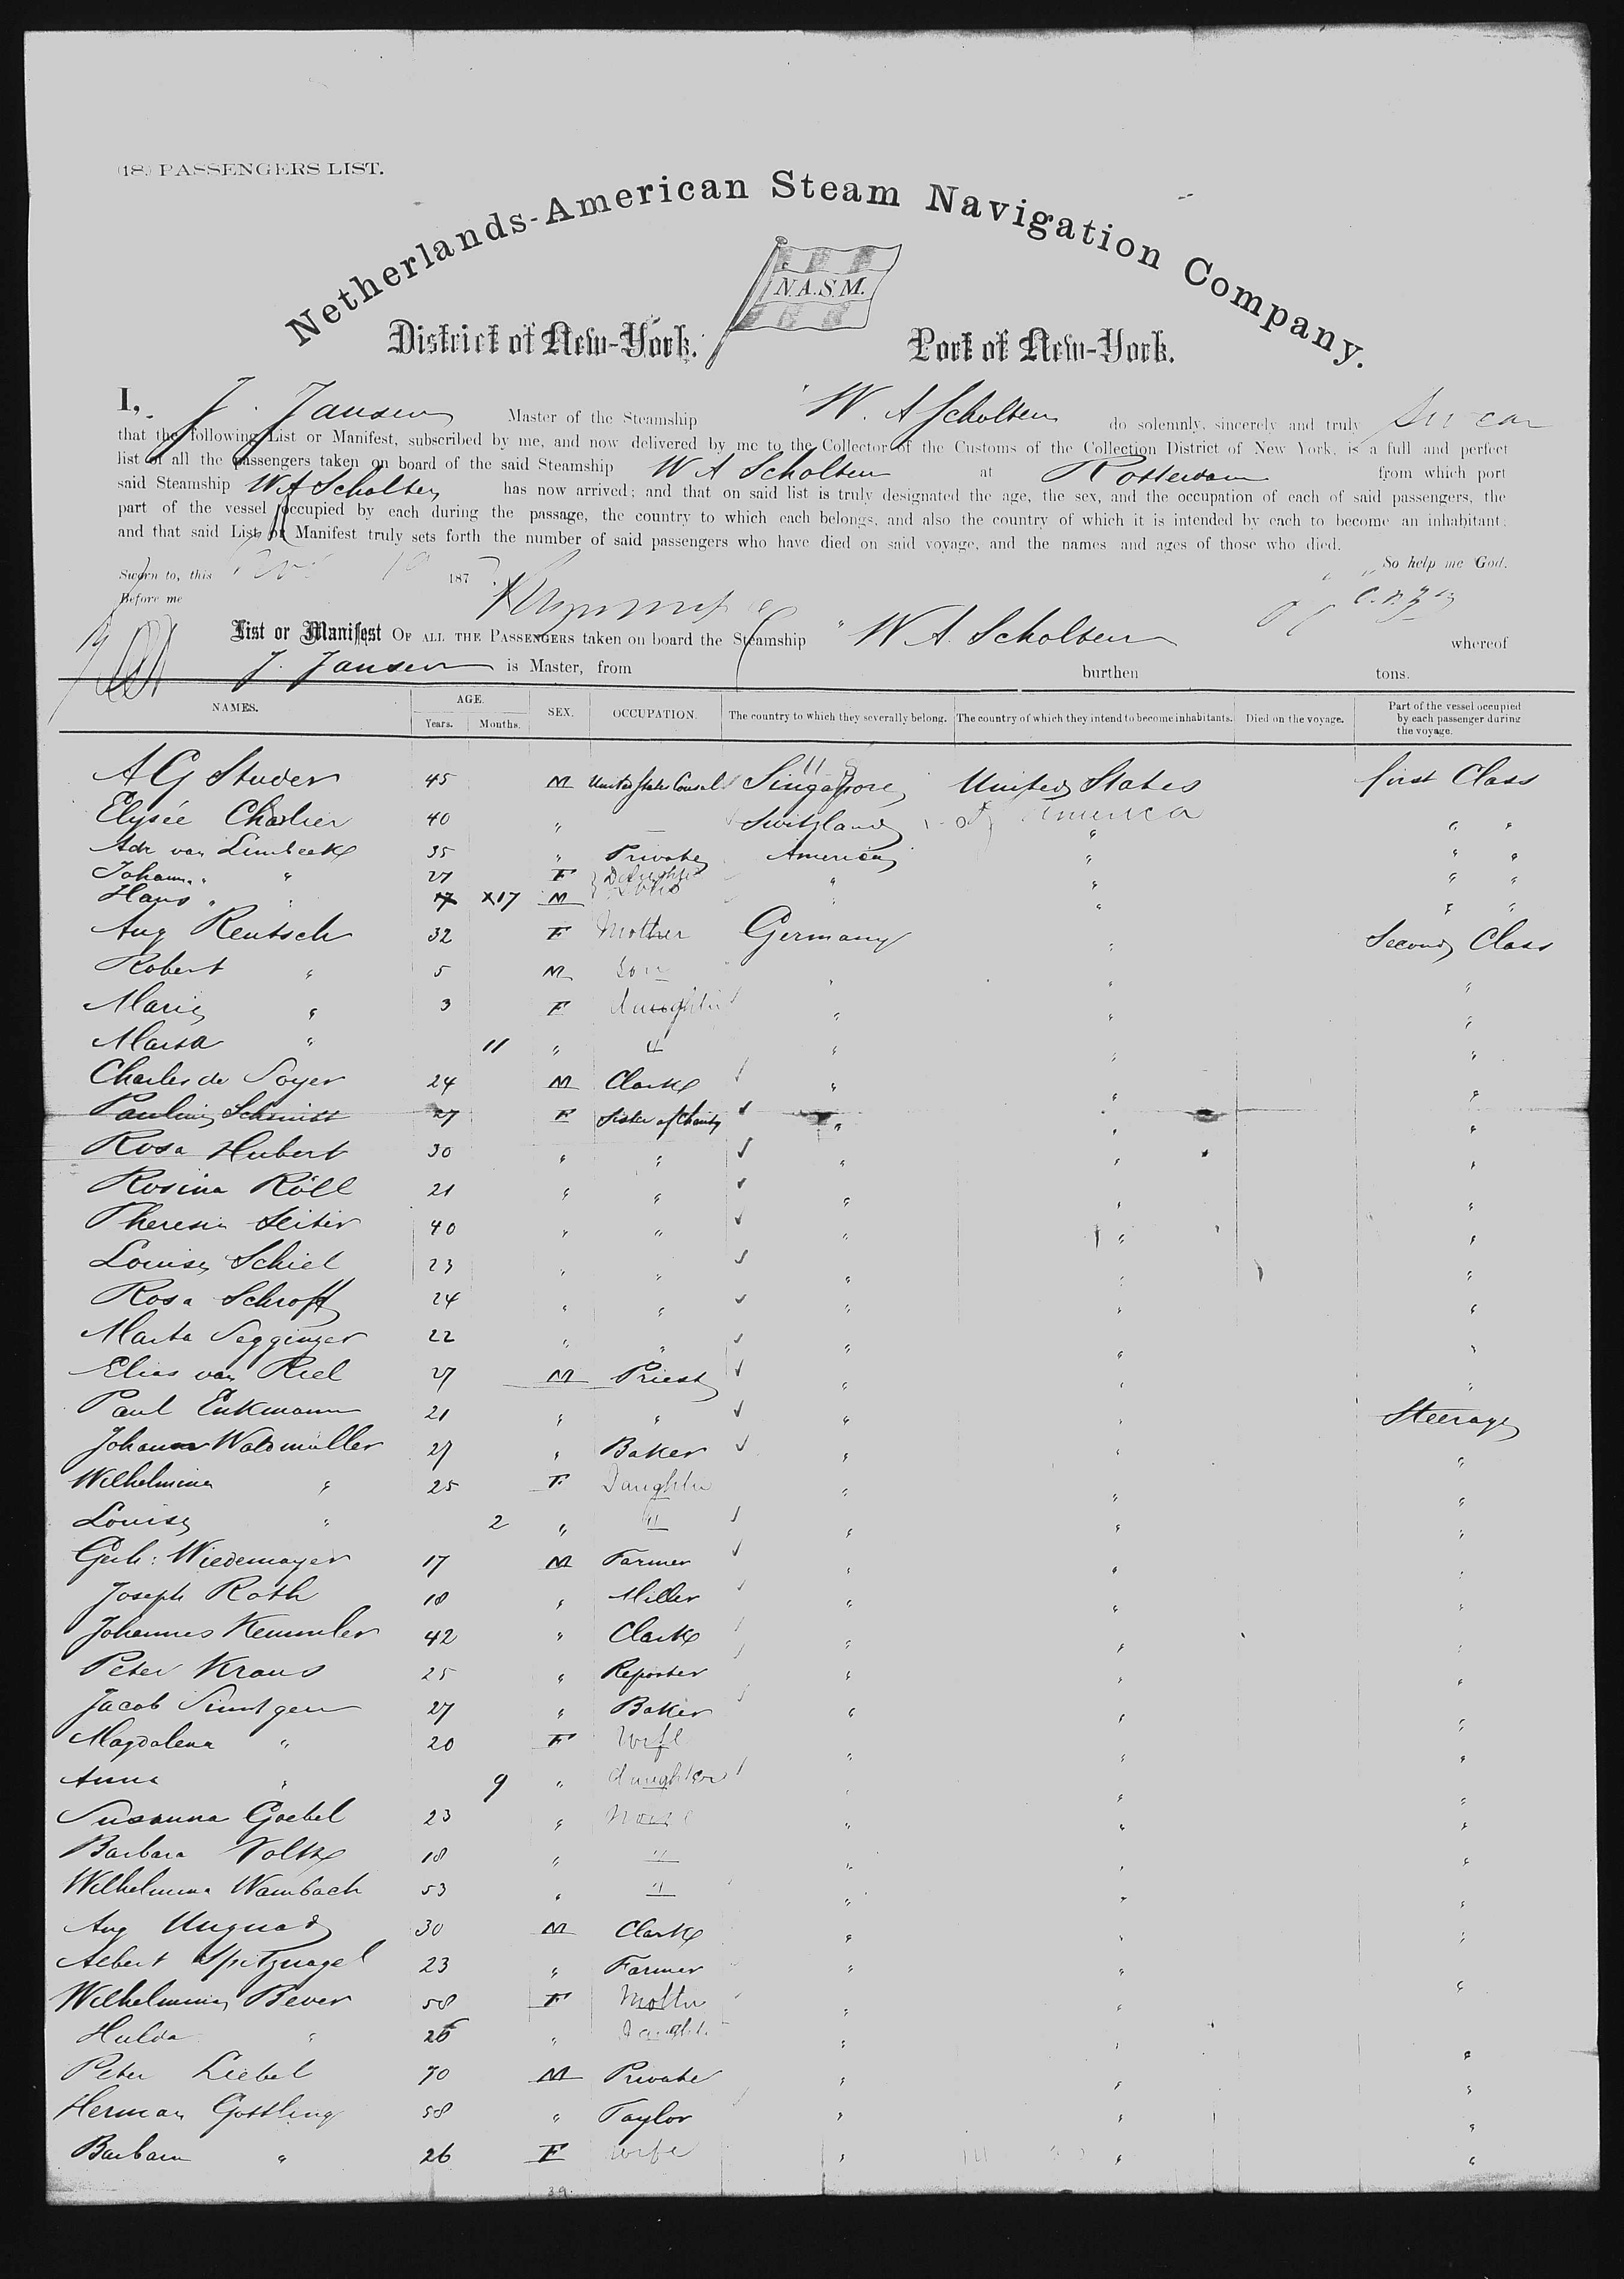 (18.) PASSENGERS LIST.
Netherlands-American Steam Navigation Company.
N.A.S.M.
District of New-York. Port of New-York.
I, J. Jansen Master of the Steamship W. A Scholten do solemnly, sincerely and truly swear
that the following List or Manifest, subscribed by me, and now delivered by me to the Collector of the Customs of the Collection District of New York, is a full and perfect
list of all the passengers taken on board of the said Steamship W A Scholten at Rotterdam from which port
said Steamship W A Scholten has now arrived; and that on said list is truly designated the age, the sex, and the occupation of each of said passengers, the
part of the vessel occupied by each during the passage, the country to which each belongs, and also the country of which it is intended by each to become an inhabitant;
and that said List or Manifest truly sets forth the number of said passengers who have died on said voyage, and the names and ages of those who died.
So help me God.
Sworn to, this 187
Before me
List or Manifest OF ALL THE PASSENGERS taken on board the Steamship " W. A. Scholten whereof
J. Jansen is Master, from burthen tons.
NAMES. AGE. Years. Months. SEX. OCCUPATION. The country to which they severally belong. The country of which they intend to become inhabitants. Died on the voyage. Part of the vessel occupied by each passenger during the voyage.
A G Studer 45 M United States Consul Singapore United States first Class
Elysée Charlier 40 " — Switzland of America " "
Adr van Limbeek 35 " Private America " " "
Johann " " 27 F " " " "
Hans " " 17 X17 M " " " "
Aug Rentsch 32 F Mother Germany " Second Class
Robert " 5 M Son " " "
Marie " 3 F daughter " " "
Marta " 11 " " " " "
Charles de Soyer 24 M Clark " " "
Pauline Schmitt 27 F Sister of Charity " " "
Rosa Hubert 30 " " " " "
Rosina Röll 21 " " " " "
Theresia Seiter 40 " " " " "
Louise Schiel 23 " " " " "
Rosa Schroff 24 " " " " "
Marta Segginger 22 " " " " "
Elias van Riel 27 M Priest " " "
Paul Enkmann 21 " " " " Steerage
Johann Waldmüller 27 " Baker " " "
Wilhelmina " 25 F Daughter " " "
Louise " 2 " " " " "
Gerh: Wiedemayer 17 M Farmer " " "
Joseph Roth 18 " Miller " " "
Johannes Kemmler 42 " Clark " " "
Peter Kraus 25 " Reporter " " "
Jacob Simtgen 27 " Baker " " "
Magdalena " 20 F Wife " " "
Anna " 9 " daughter " " "
Susanna Goebel 23 " None " " "
Barbara Voltz 18 " " " " "
Wilhelmina Wambach 53 " " " " "
Aug Ungnad 30 M Clark " " "
Albert Spitznagel 23 " Farmer " " "
Wilhelmina Bever 58 F Mother " " "
Hulda " 26 " Daught. " " "
Peter Liebel 70 M Private " " "
Herman Gottling 58 " Taylor " " "
Barbara " 26 F wife " " "
39